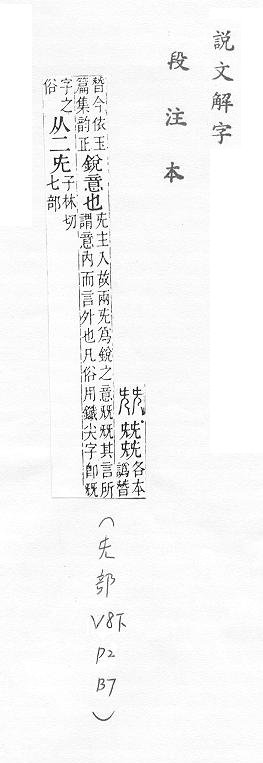 説文解字
段注本
兓 兓 各本
譌朁
朁今依玉
篇集韵正
銳意也
兂主入故兩兂爲銳之意兓兓其言所
謂意內而言外也凡俗用鐵尖字卽兓
字之
俗
从二兂
子林切
七部
(兂部
V8下
P2
B7)